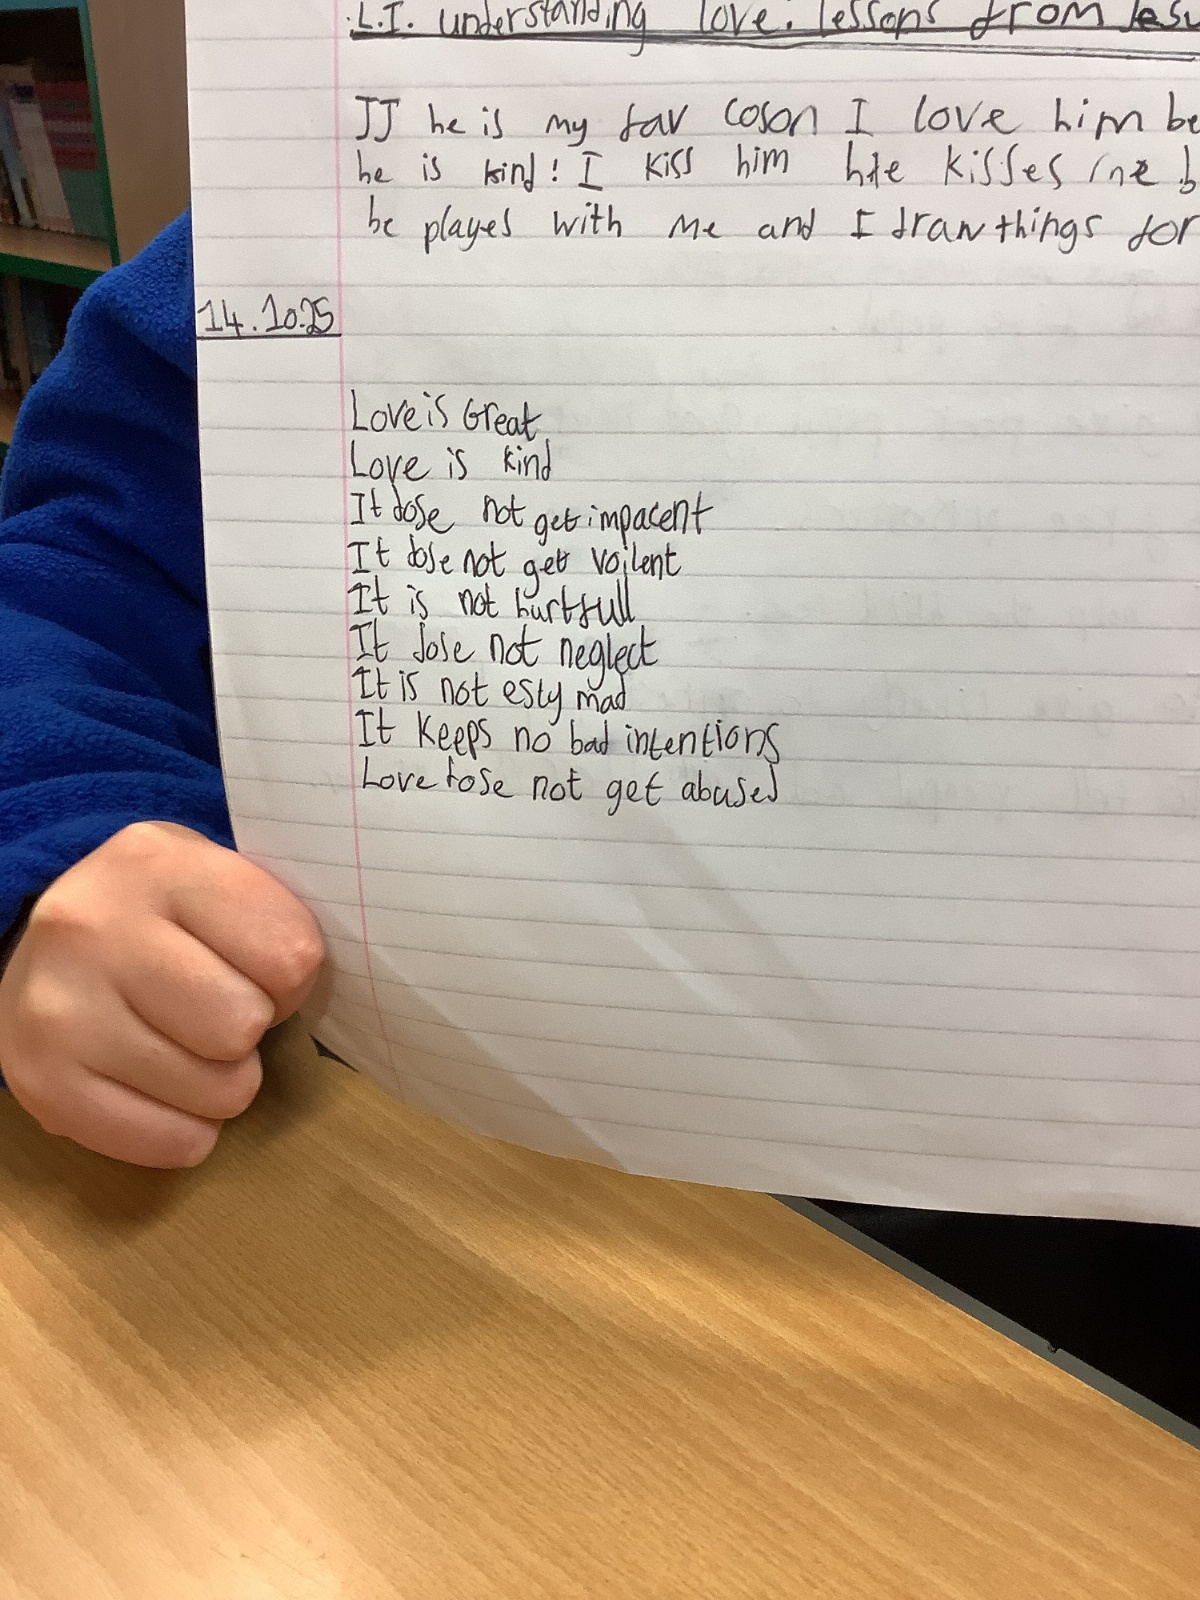 L.I. understanding love. lessons from Jesu
JJ he is my fav coson I love him be
he is kind! I kiss him he kisses me b
he playes with me and I draw things for
14.10.25
Love is Great
Love is kind
It dose not get impacent
It dose not get voilent
It is not hurtfull
It dose not neglect
It is not esty mad
It keeps no bad intentions
Love dose not get abused